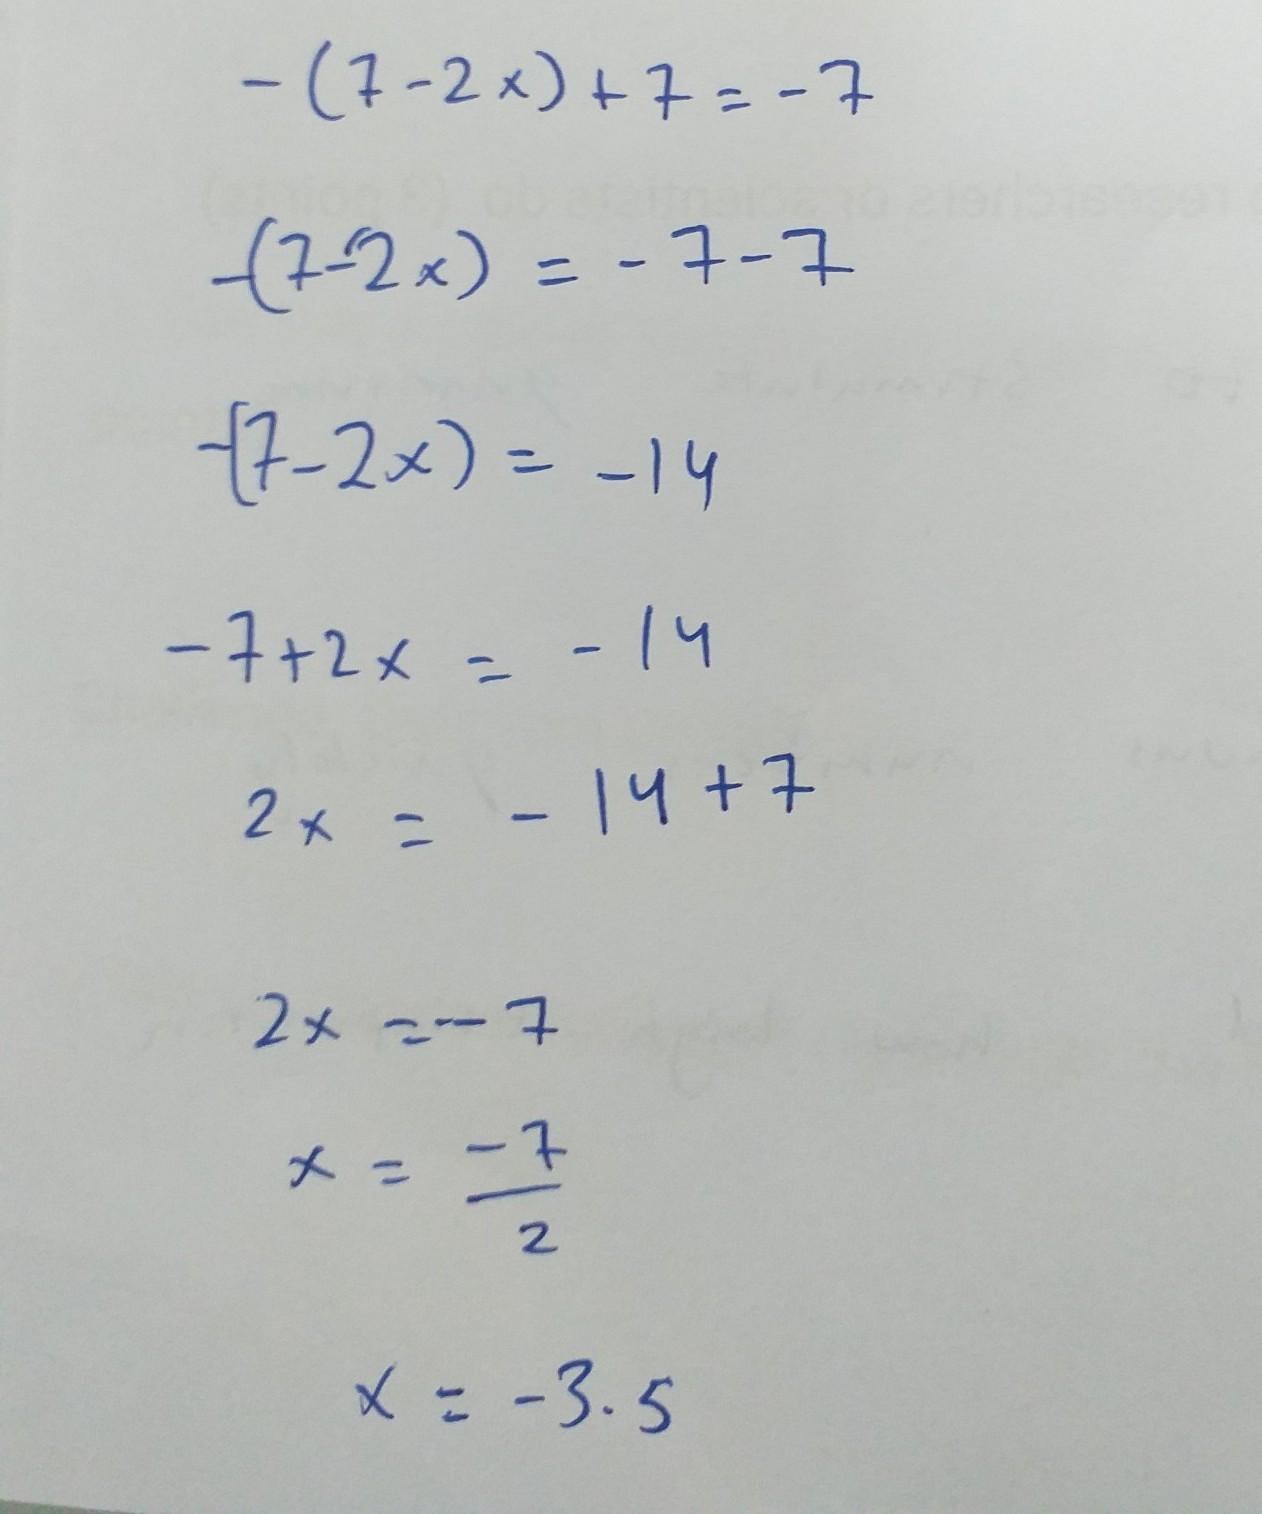 -(7-2x)+7=-7
-(7-2x) = -7-7
-(7-2x) = -14
-7+2x = -14
2x = -14+7
2x = -7
x = -7/2
x = -3.5